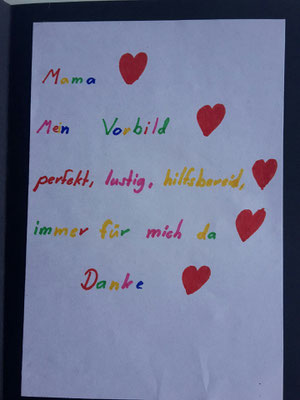 Mama
Mein Vorbild
perfekt, lustig, hilfsbereid,
immer für mich da
Danke